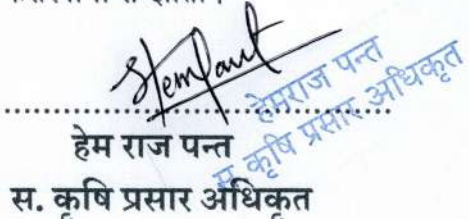 Hempant
हेमराज पन्त
स. कृषि प्रसार अधिकृत
..............................
हेम राज पन्त
स. कृषि प्रसार अधिकृत